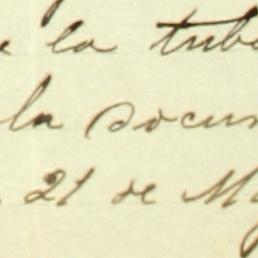 e la tube
la docum
21 de Ma